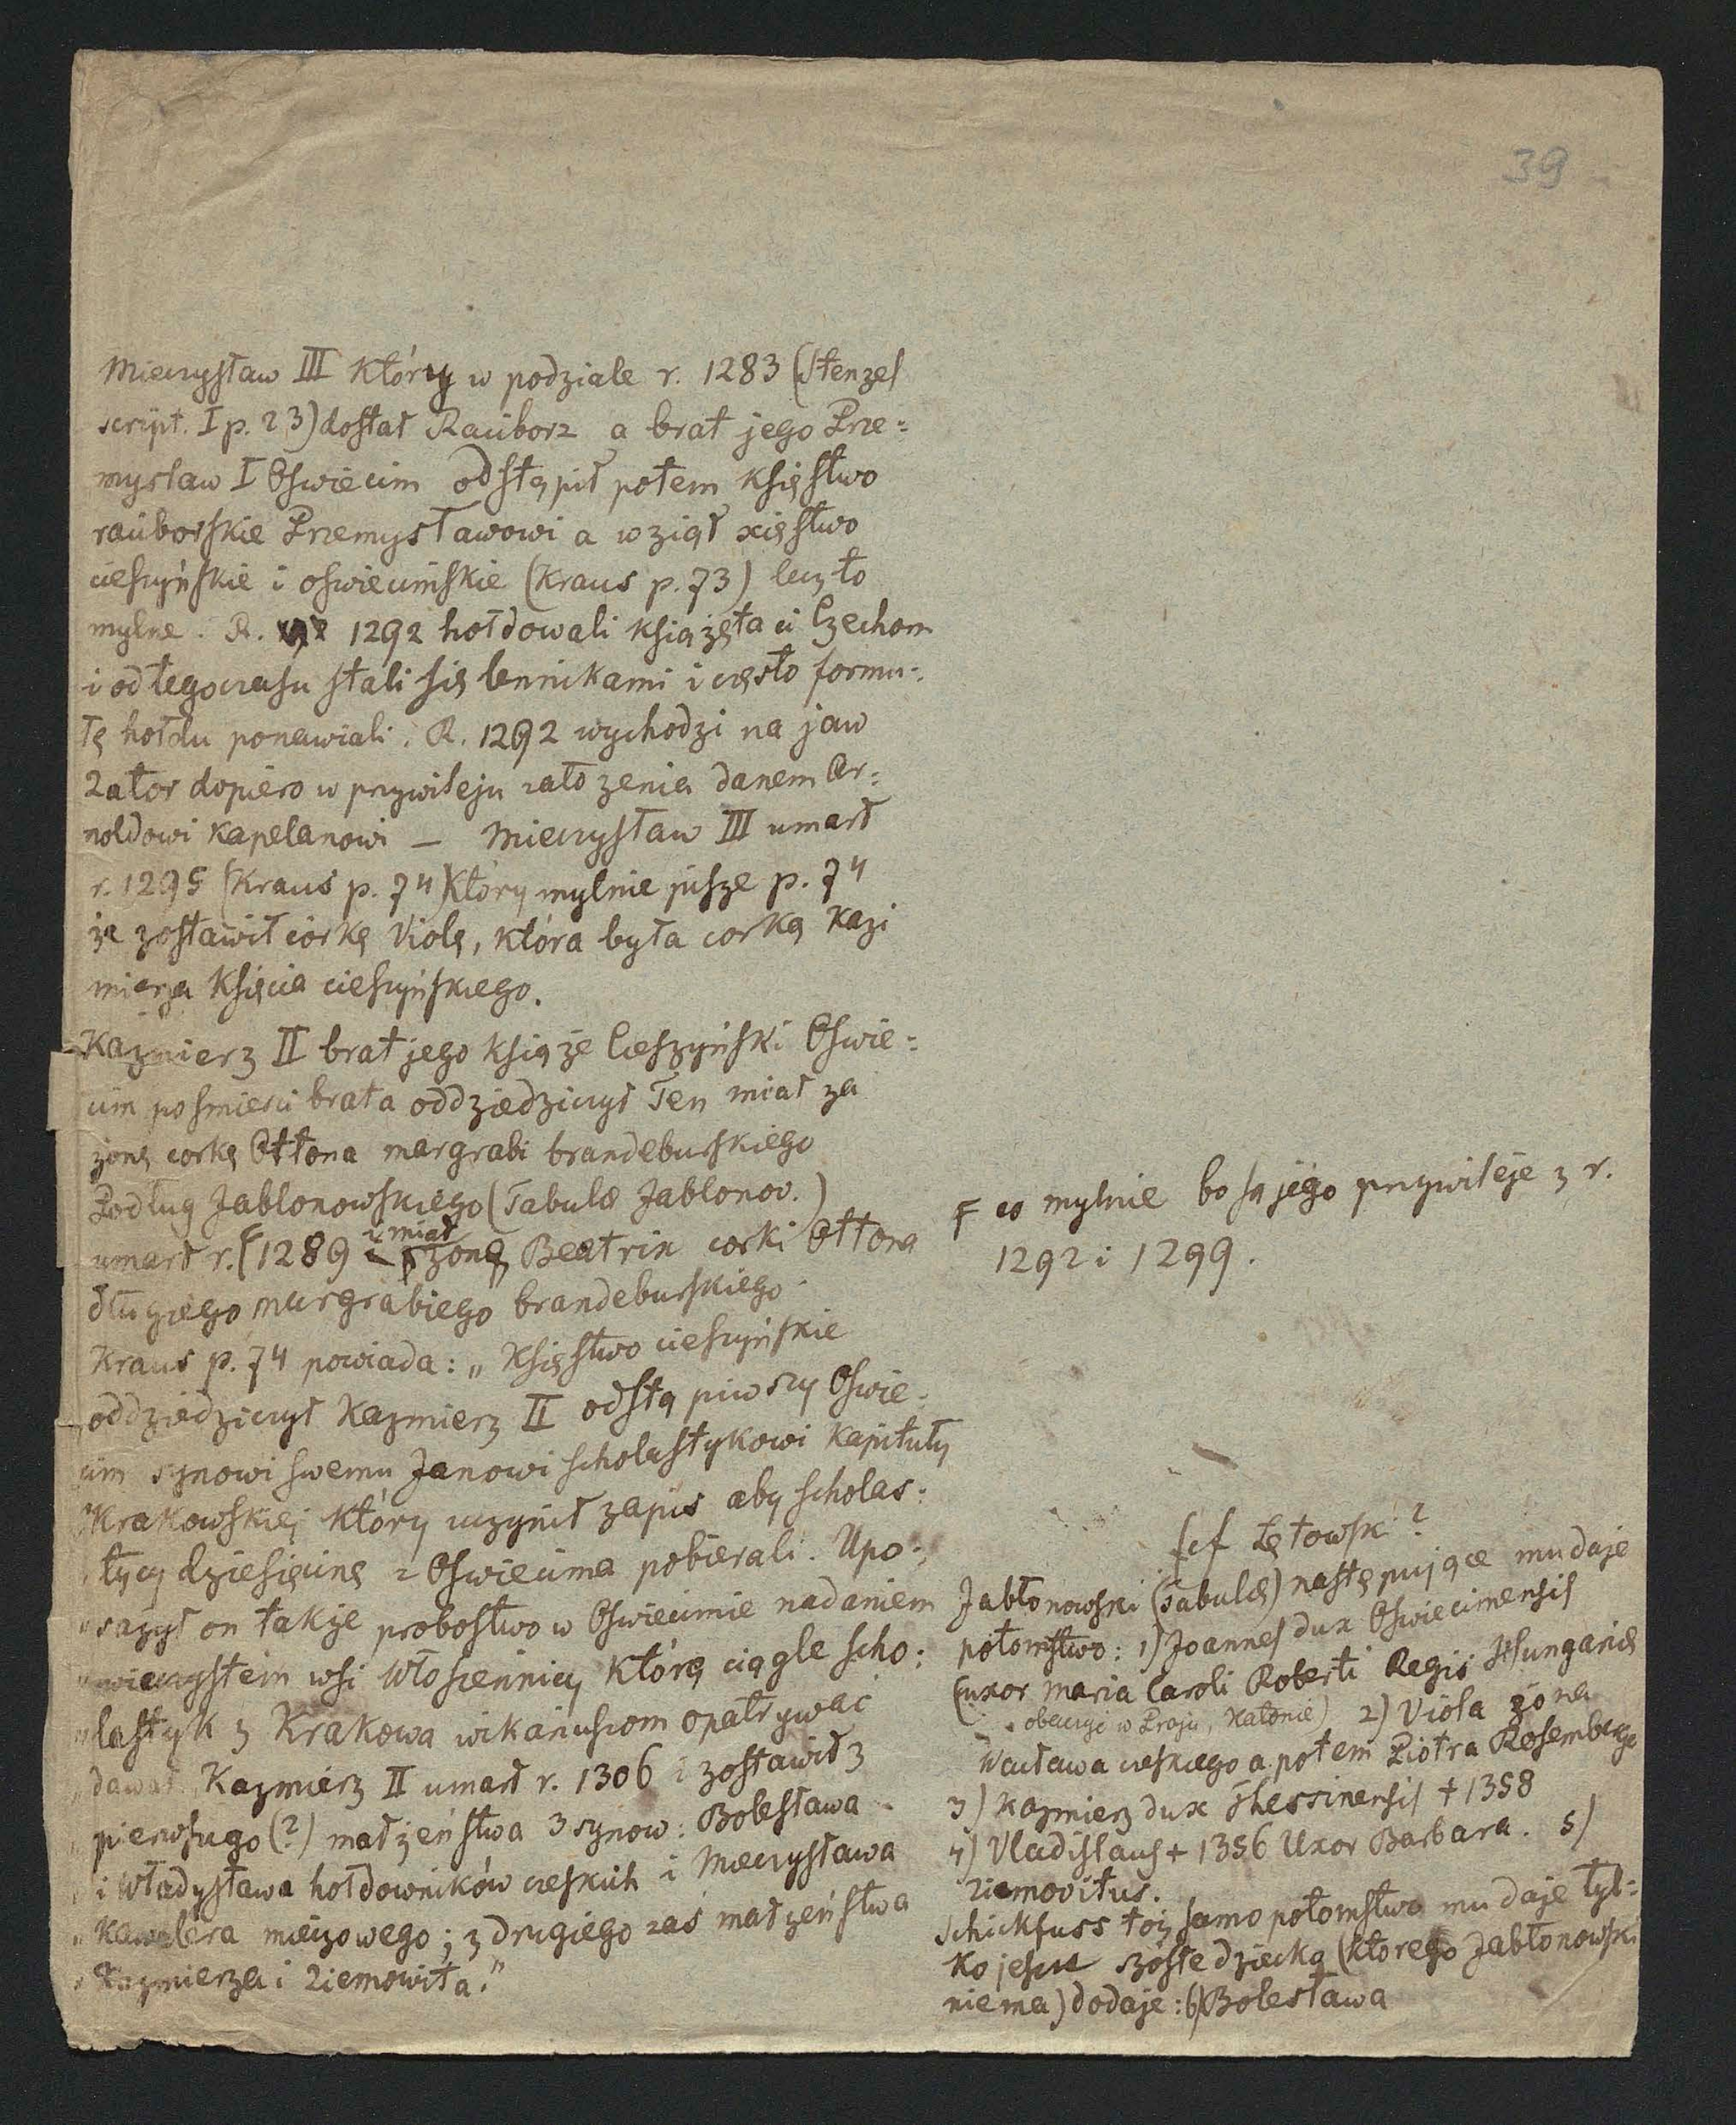 39
Mieczysław III który w podziale r. 1283 (Stenzel
script. I p. 23) dostał Racibórz a brat jego Prze=
mysław I Oswiecim odstąpił potem księstwo
raciborskie Przemysławowi a wziął xięstwo
cieszyńskie i oswiecimskie (Kraus p. 73) lecz to
mylne. R. 1292 hołdowali książęta ci Czechom
i od tego czasu stali się lennikami i często formu=
łę hołdu ponawiali. R. 1292 wychodzi na jaw
Zator dopiero w przywileju założenia danem Ar=
noldowi kapelanowi — Mieczysław III umarł
r. 1295 (Kraus p. 74) który mylnie pisze p. 74
że zostawił córkę Violę, która była corką Kazi
mierza księcia cieszyńskiego.
Kazmierz II brat jego książe Cieszyński Oswie=
cim po smierci brata oddziedziczył Ten miał za
żonę corkę Ottona margrabi brandeburskiego
Podług Jablonowskiego (Tabulæ Jablonov.)
umarł r. F 1289 i miał żonę Beatrix corki Ottona
długiego margrabiego brandeburskiego.
Kraus p. 74 powiada: „Księstwo cieszyńskie
oddziedziczył Kazmierz II odstąpiwszy Oswie=
cim synowi swemu Janowi scholastykowi kapituły
Krakowskiej który uczynił zapis aby scholas=
tycy dziesięcinę z Oswiecima pobierali. Upo=
„sażył on także probostwo w Oswiecimie nadaniem
„wieczystem wsi Włosiennicy którę ciągle scho=
„lastyk z Krakowa wikariuszom opatrywać
„dawał Kazmierz II umarł r. 1306 i zostawił z
„pierwszego (?) małżeństwa 3 synow: Bolesława
„i Władysława hołdowników czeskich i Mieczysława
„Kawalera mieczowego; z drugiego zaś małżeństwa
„Kazmierza i Ziemowita."
F co mylnie bo są jego przywileje z r.
1292 i 1299.
[cf Łętowski ?
Jabłonowski (Tabulæ) następujące mu daje
potomstwo: 1) Joannes dux Oswiecimensis
(uxor Maria Caroli Roberti Regis Hungariæ
2) Viola żona
Wacława czeskiego a potem Piotra Rosemberga
3) Kazmierz dux Thessinensis + 1358
4) Vladislaus + 1356 Uxor Barbara. 5)
Ziemovitus.
Schickfuss toż samo potomstwo mu daje tyl=
ko jeszcze szóste dziecko (którego Jabłonowski
niema) dodaje: 6) Bolesława